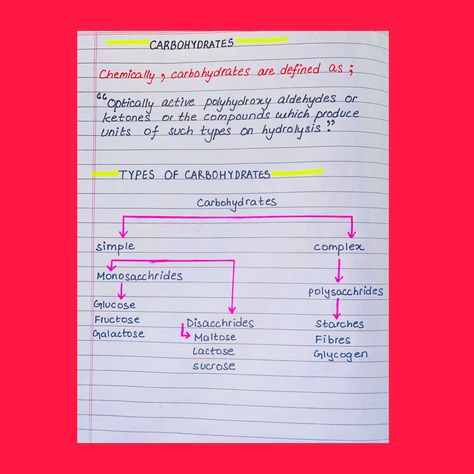 CARBOHYDRATES
Chemically, carbohydrates are defined as;
“Optically active polyhydroxy aldehydes or
ketones or the compounds which produce
units of such types on hydrolysis.”
TYPES OF CARBOHYDRATES
Carbohydrates
simple
complex
Monosacchrides
polysacchrides
Glucose
Fructose
Galactose
Disacchrides
Maltose
Lactose
sucrose
Starches
Fibres
Glycogen